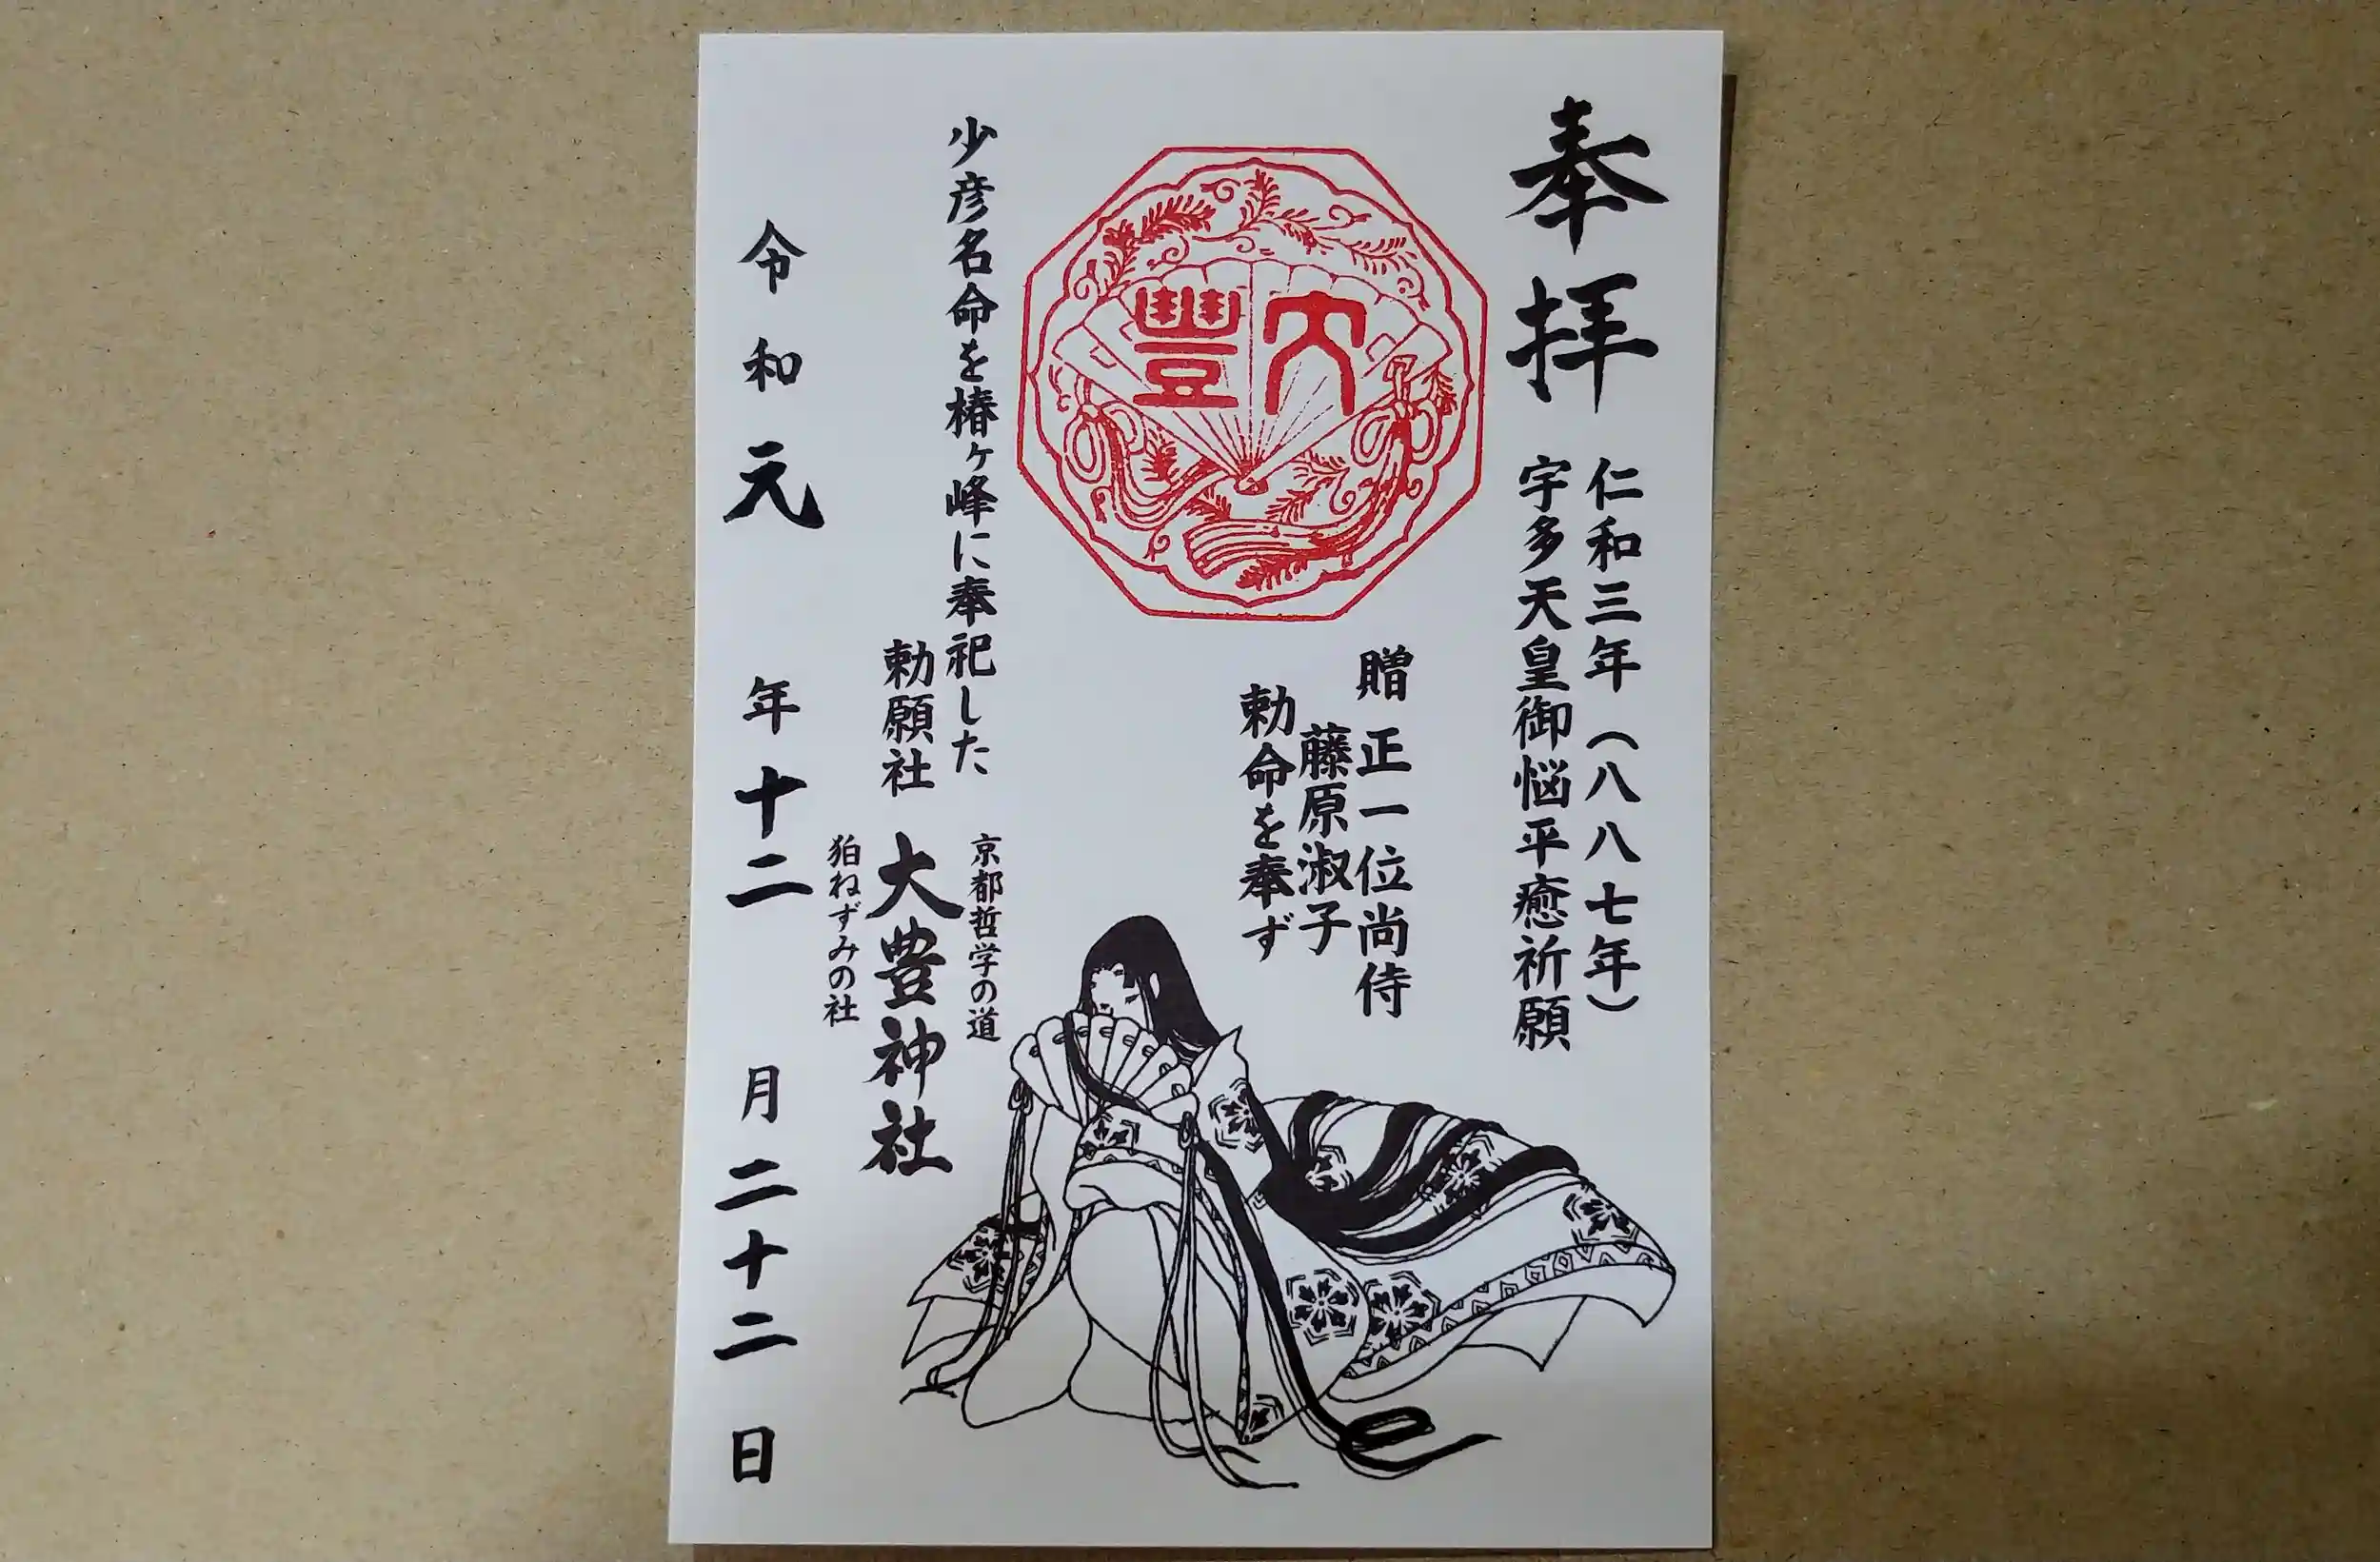 奉拝
仁和三年(八八七年)
宇多天皇御悩平癒祈願
大豐
贈 正一位尚侍
藤原淑子
勅命を奉ず
少彦名命を椿ヶ峰に奉祀した
勅願社
京都哲学の道
大豊神社
狛ねずみの社
令和元年十二月二十二日